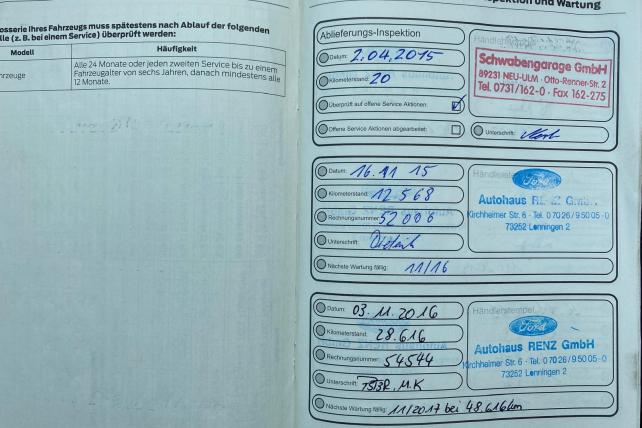 osserie Ihres Fahrzeugs muss spätestens nach Ablauf der folgenden
lle (z. B. bei einem Service) überprüft werden:
Modell Häufigkeit
hrzeuge
Alle 24 Monate oder jeden zweiten Service bis zu einem
Fahrzeugalter von sechs Jahren, danach mindestens alle
12 Monate.
pektion und Wartung
Ablieferungs-Inspektion
Datum: 2.04.2015
Kilometerstand: 20
Überprüft auf offene Service Aktionen:
Offene Service Aktionen abgearbeitet:
Händler
Schwabengarage GmbH
89231 NEU-ULM · Otto-Renner-Str. 2
Tel. 0731/162-0 · Fax 162-275
Unterschrift:
Datum: 16.11 15
Kilometerstand: 12568
Rechnungsnummer: 52006
Unterschrift:
Nächste Wartung fällig: 11/16
Händlerste
Ford
Autohaus RENZ GmbH
Kirchheimer Str. 6 · Tel. 0 70 26 / 9 50 05 - 0
73252 Lenningen 2
Datum: 03.11.2016
Kilometerstand: 28.616
Rechnungsnummer: 54544
Unterschrift: M.K
Nächste Wartung fällig: 11/2017 bei 48.616km
Händlerstempel
Ford
Autohaus RENZ GmbH
Kirchheimer Str. 6 · Tel. 0 70 26 / 9 50 05 - 0
73252 Lenningen 2